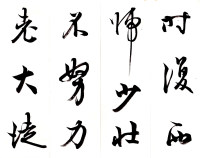 时復西
归少壮
不努力
老大徒